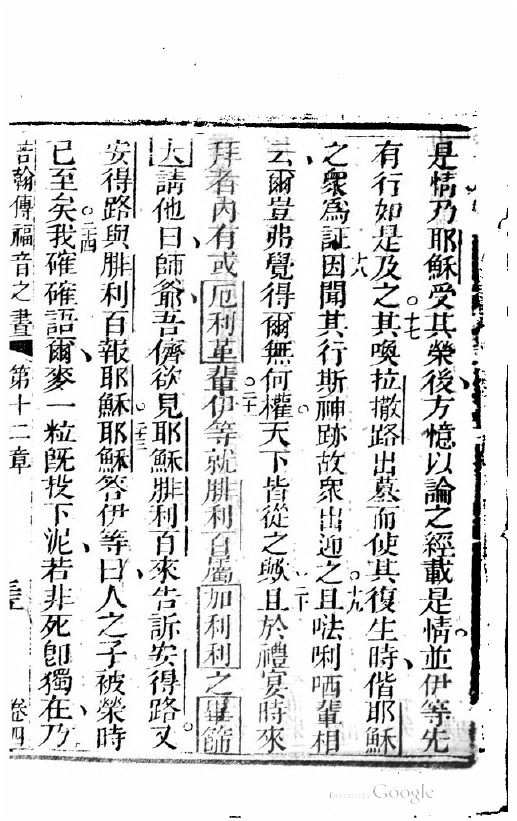 是情乃耶穌受其榮後方憶以論之經載是情並伊等先
有行如是及之其喚拉撒路出墓而使其復生時偕耶穌
之衆為証因聞其行斯神跡故衆出迎之且𠵽唎哂輩相
云爾豈弗覺得爾無何權天下皆從之歟且於禮宴時來
拜者內有或厄利革輩伊等就腓利百屬加利利之畢篩
大請他曰師爺吾儕欲見耶穌腓利百來告訴安得路又
安得路與腓利百報耶穌耶穌答伊等曰人之子被榮時
已至矣我確確語爾麥一粒既投下泥若非死卽獨在乃
若翰傳福音之書 第十二章 卷四
十七
十八
十九
二十
二下
二三
二四
Google